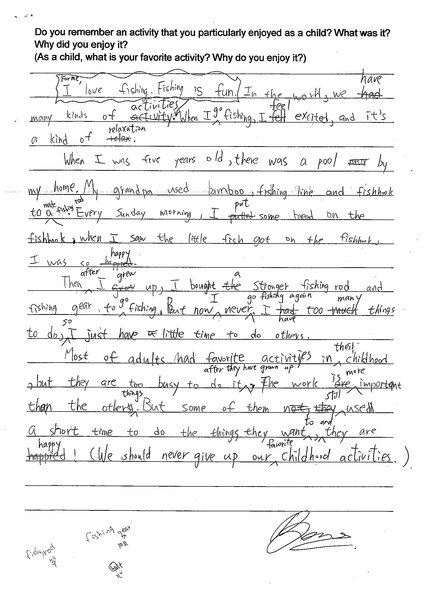 Do you remember an activity that you particularly enjoyed as a child? What was it?
Why did you enjoy it?
(As a child, what is your favorite activity? Why do you enjoy it?)
For me, have
I love fishing. Fishing is fun. In the world, we had
activities go feel
many kinds of activity. When I fishing, I fell excited, and it's
relaxation
a kind of relax.
When I was five years old, there was a pool by
my home. My grandpa used bamboo, fishing line and fishhook
make fishing rod put
to a. Every Sunday morning, I putted some bread on the
fishhook, when I saw the little fish got on the fishhook,
happy
I was so happed.
after grew a
Then I grow up, I bought the stonger fishing rod and
go I go fishing again many
fishing gear to fishing, But now never, I had too much things
so have
to do, I just have a little time to do others.
their
Most of adults had favorite activities in childhood
after they have grown up is more
, but they are too busy to do it. The work are important
things still
than the others. But some of them not they used
to and
a short time to do the things they want, they are
happy favorite
happied! (We should never give up our childhood activities.)
fishing gear
fishing rod